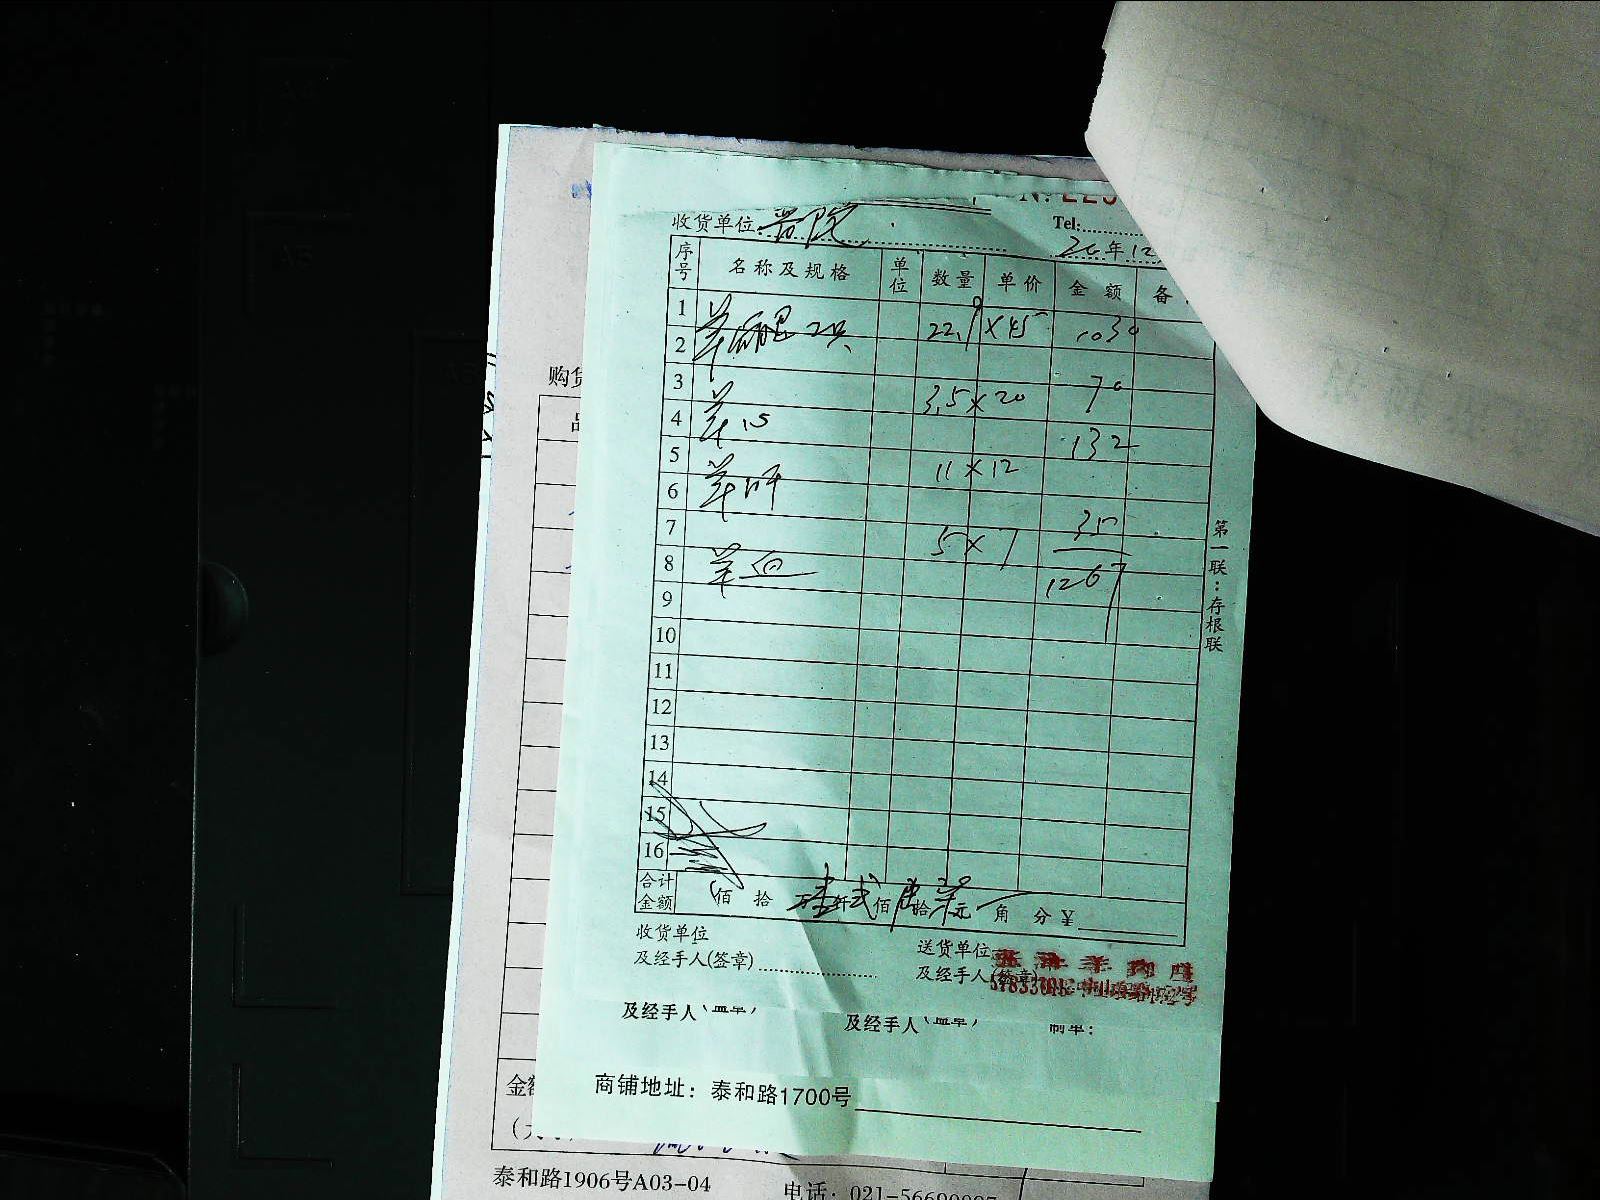 收货单位:
Tel:
20年12
序号 名称及规格 单位 数量 单价 金额 备
1
2 羊后腿 2只 22.9 × 45 1030
3
4 羊心 3.5 × 20 70
5
6 羊肝 11 × 12 132
7
8 羊血 5 × 7 35
9 1267
10
11
12
13
14
15
16
合计金额 佰 拾 万壹仟贰佰陆拾柒元 角 分 ¥
收货单位 送货单位
及经手人(签章) 及经手人(签章)
第一联：存根联
及经手人(盖章) 及经手人(盖章) 制单：
商铺地址：泰和路1700号
购货
泰和路1906号A03-04 电话：021-566